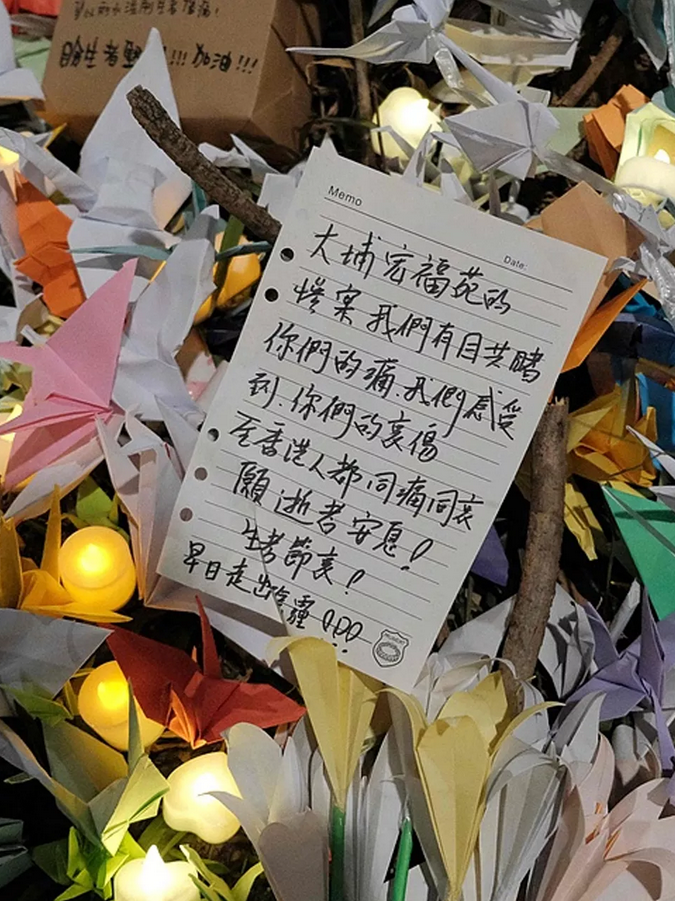 自 者 !!! 加油 !!!
Memo
Date:
大埔宏福苑的
慘案我們有目共睹
你們的痛、我們感受
到、你們的哀傷
全香港人都同痛同哀
願逝者安息!
生者節哀!
早日走出陰霾!!!